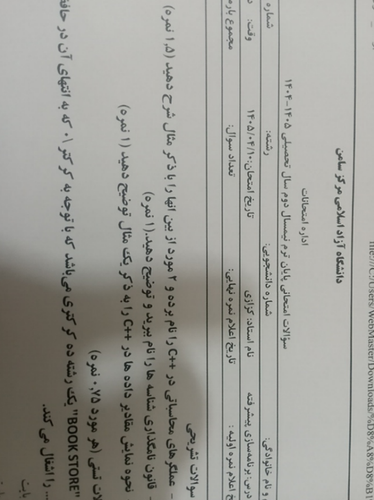 file:///C:/Users/WebMaster/Downloads/%D8%A8%D8%
دانشگاه آزاد اسلامی مرکز سامن
اداره امتحانات
سؤالات امتحانی پایان ترم نیمسال دوم سال تحصیلی ۱۴۰۵-۱۴۰۴
و نام خانوادگی: شماره دانشجویی: رشته: شماره
درس: برنامه‌سازی پیشرفته نام استاد: کزازی تاریخ امتحان: ۱۴۰۵/۰۴/۱۰ وقت:
خ اعلام نمره اولیه: تاریخ اعلام نمره نهایی: تعداد سوال: مجموع بارم
سوالات تشریحی
- عملگرهای محاسباتی در C++ را نام برده و ۲ مورد از بین آنها را با ذکر مثال شرح دهید (۱.۵ نمره)
- قانون نامگذاری شناسه ها را نام ببرید و توضیح دهید.(۱ نمره)
نحوه نمایش مقادیر داده ها در C++ را به ذکر یک مثال توضیح دهید (۱ نمره)
لات تستی (هر مورد ۰.۷۵ نمره)
"BOOK STORE" یک رشته ده کرکتری می‌باشد که با توجه به کرکتر ۰\ که به انتهای آن در حافظ
... را اشغال می کند.
بایت